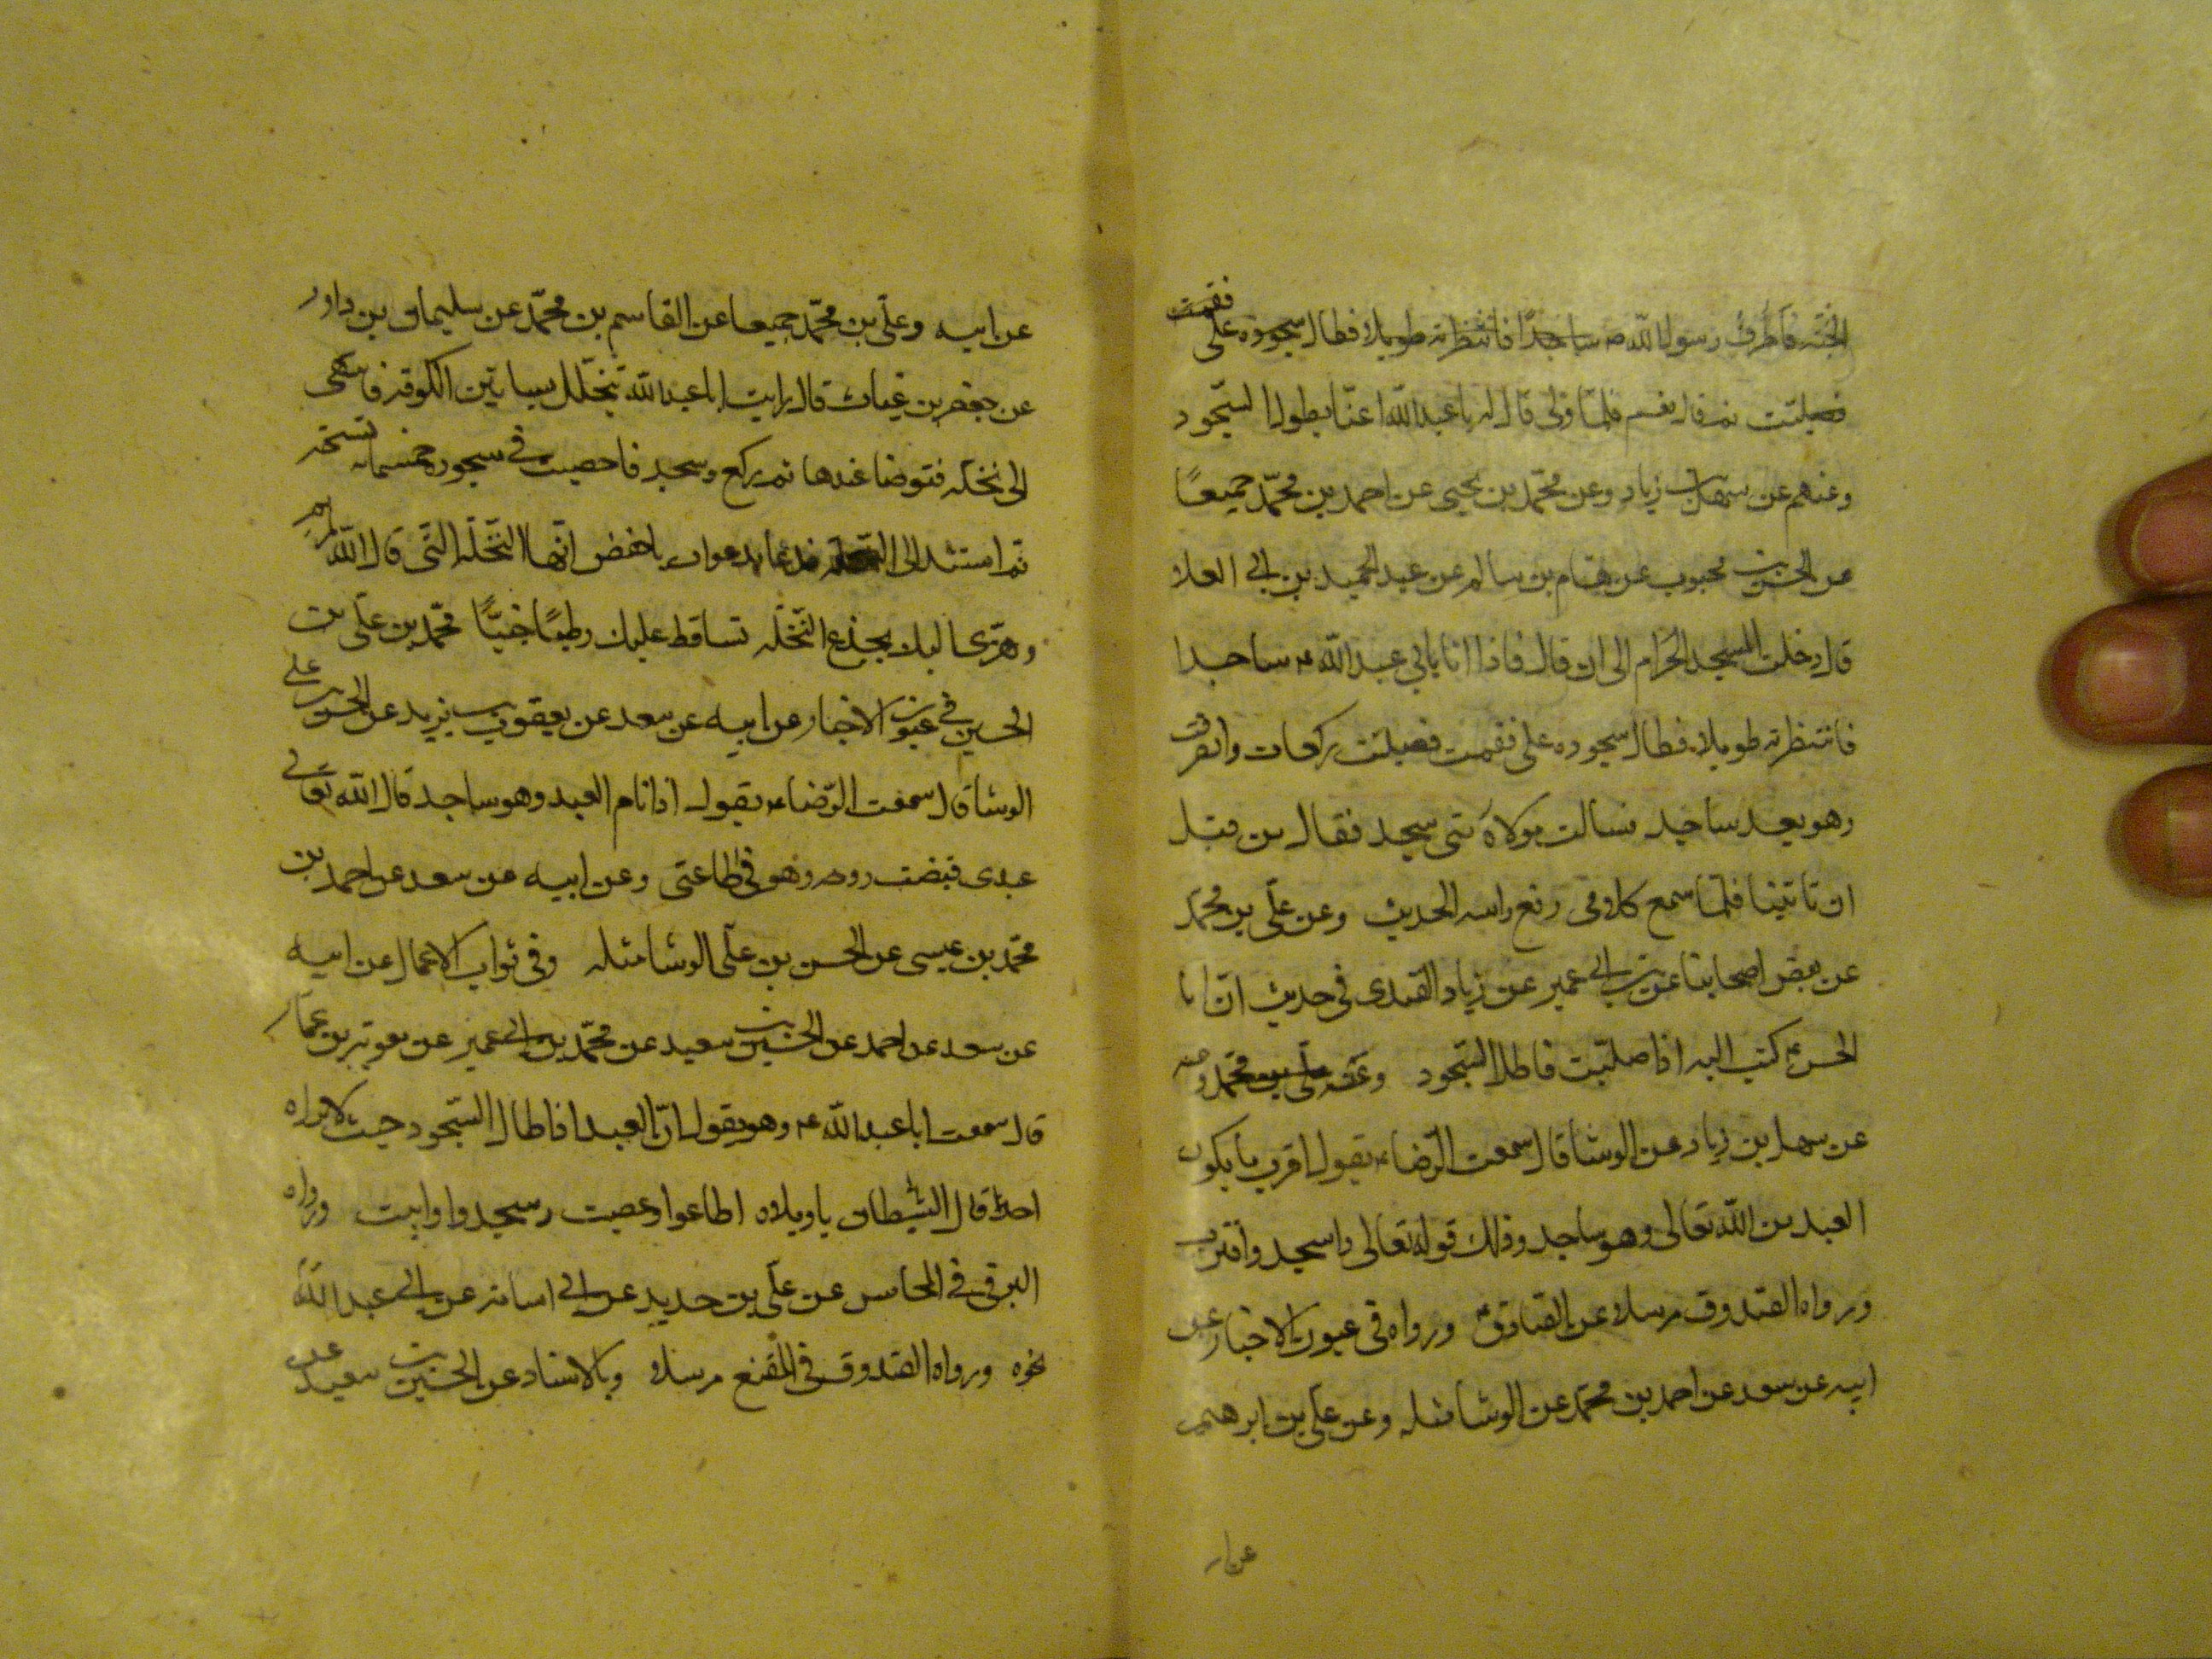 الجنة فاطرق رسول الله ص ساجدا فانتظرته طويلا فطال سجوده على فقمت
فصليت ثم قال نعم فلما ولى قال له يا عبد الله اعنا بطول السجود
وعنهم عن سهل بن زياد وعن محمد بن يحيى عن احمد بن محمد جميعًا
عن الحسن بن محبوب عن هشام بن سالم عن عبد الحميد بن ابي العلا
قال دخلت المسجد الحرام الى ان قال فاذا انا بابي عبد الله ع ساجدا
فانتظرته طويلا فطال سجوده على فقمت فصليت ركعات وانصرفت
وهو بعد ساجد فسالت مولاه متى سجد فقال من قبل
ان تاتينا فلما سمع كلامى رفع راسه الحديث وعن على بن محمد
عن بعض اصحابنا عن بن ابي عمير عن زياد القندى في حديث ان ابا
الحسن ع كتب اليه اذا صليت فاطل السجود وعنه
عن سهل بن زياد عن الوشا قال سمعت الرضا ع يقول اقرب ما يكون
العبد من الله تعالى وهو ساجد وذلك قوله تعالى واسجد واقترب
ورواه الصدوق مرسلا عن الصادق ع ورواه في عيون الاخبار عن
ابيه عن سعد عن احمد بن محمد عن الوشا مثله وعن على بن ابرهيم
عن ابيه وعلى بن محمد جميعا عن القاسم بن محمد عن سليمان بن داود
عن حفص بن غياث قال رايت ابا عبد الله تخلل بساتين الكوفة فانتهى
الى نخلة فتوضا عندها ثم ركع وسجد فاحصيت في سجوده خمسمائة تسبيحة
ثم استند الى النخلة فدعا بدعوات يا حفص انها النخلة التي قال الله لمريم
وهزى اليك بجذع النخلة تساقط عليك رطبًا جنيًا محمد بن على بن
الحسين في عيون الاخبار عن ابيه عن سعد عن يعقوب بن يزيد عن الحسن بن على
الوشا قال سمعت الرضا ع يقول اذا نام العبد وهو ساجد قال الله تعالى
عبدى قبضت روحه وهو في طاعتى وعن ابيه عن سعد عن احمد بن
محمد بن عيسى عن الحسن بن على الوشا مثله وفي ثواب الاعمال عن ابيه
عن سعد عن احمد عن الحسين بن سعيد عن محمد بن ابي عمير عن معوية بن عمار
قال سمعت ابا عبد الله ع وهو يقول ان العبد اذا طال السجود حيث لا يراه
احد قال الشيطان يا ويلاه اطاعوا وعصيت وسجدوا وابيت ورواه
البرقى في المحاسن عن على بن حديد عن ابي اسامة عن ابي عبد الله
نحوه ورواه الصدوق في المقنع مرسلا وبالاسناد عن الحسين بن سعيد عن